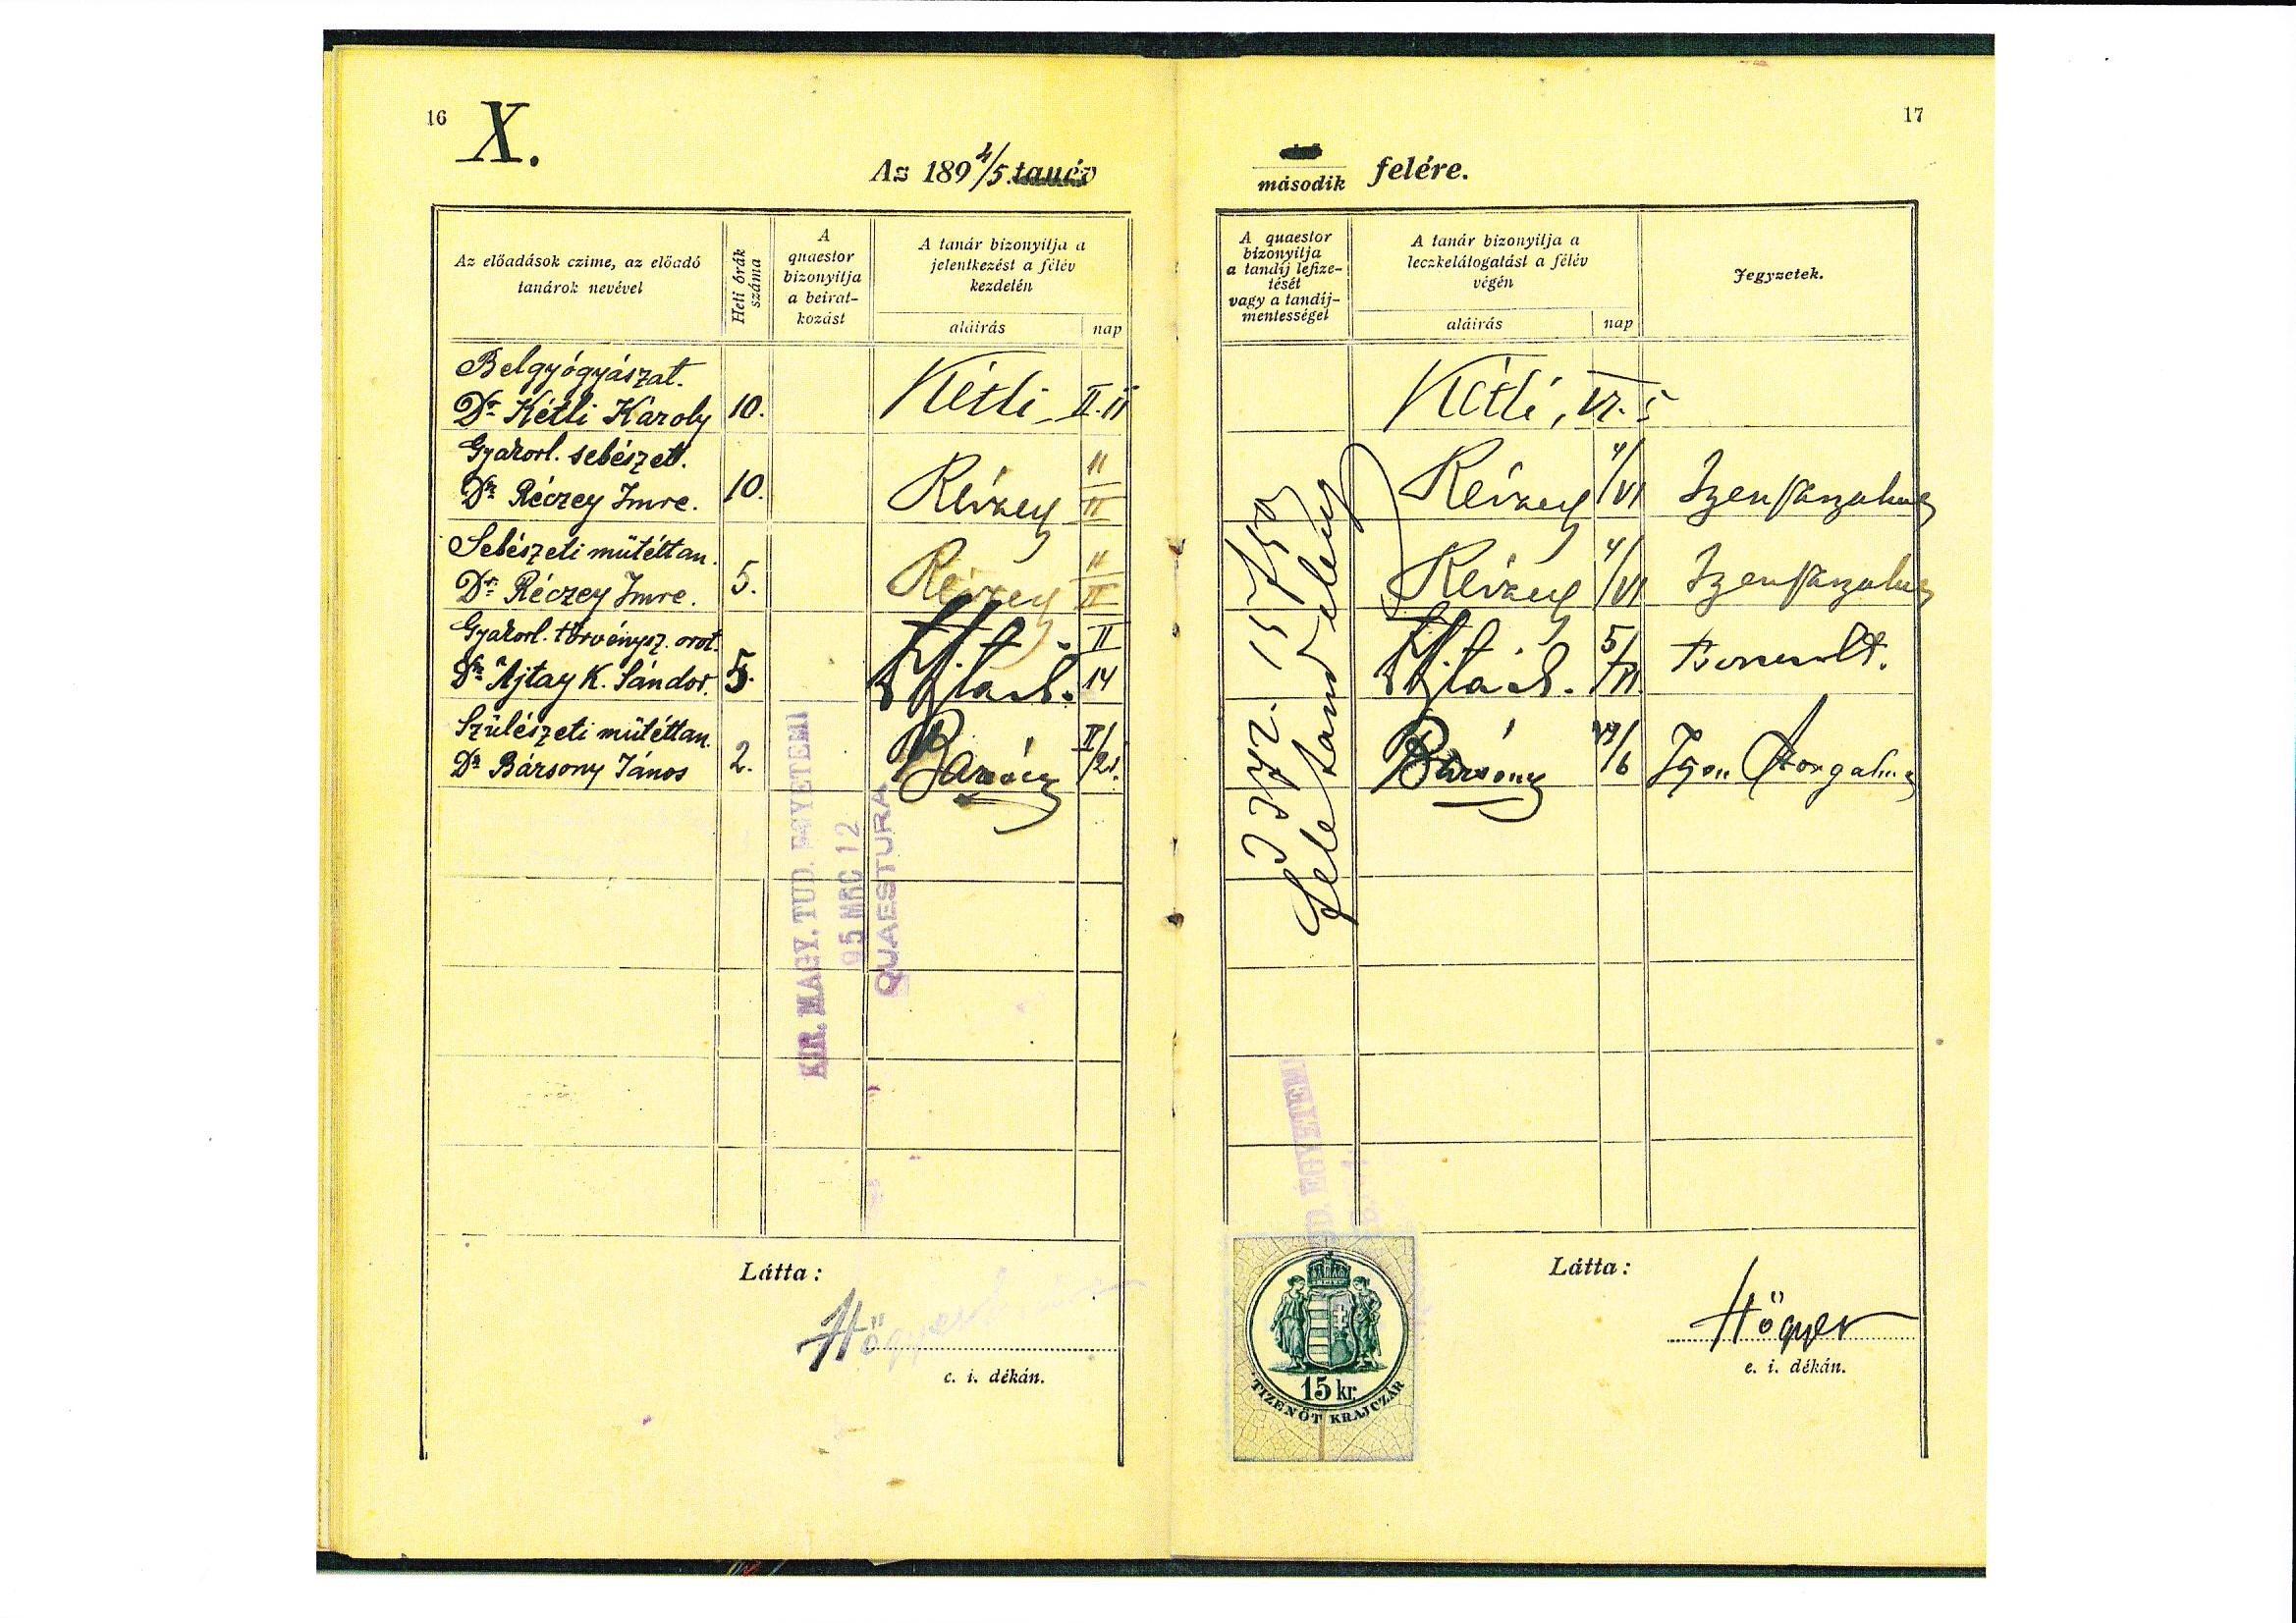 16
X.
Az 1894/5. tanév
Az előadások czime, az előadó
tanárok nevével
Heti órák
száma
A
quaestor
bizonyitja
a beirat-
kozást
A tanár bizonyitja a
jelentkezést a félév
kezdetén
aláirás
nap
Belgyógyászat.
Dr Kétli Károly
10.
Kétli
II. 11
Gyakorl. sebészett.
Dr Réczey Imre.
10.
Réczey
11
II
Sebészeti műtéttan.
Dr Réczey Imre.
5.
Réczey
11
II
Gyakorl. törvénysz. orot.
Dr Ajtay K. Sándor.
5.
II
14
Szülészeti műtéttan.
Dr Bársony János
2.
Bársony
II/21.
KIR. MAGY. TUD. EGYETEMI
95 MRC 12
QUAESTURA
Látta:
Hőgyes
e. i. dékán.
17
második felére.
A quaestor
bizonyitja
a tandíj lefize-
tését
vagy a tandíj-
mentességet
A tanár bizonyitja a
leczkelátogatást a félév
végén
aláirás
nap
Jegyzetek.
Kétli, VI. 5
Réczey
4/VI
Igen szorgalmas
Réczey
4/VI
Igen szorgalmas
5/VI
Bársony
Igen szorgalmas
15 f 50
Fele tand
UD. EGYETEMI
15 kr.
TIZENÖT KRAJCZÁR
Látta:
Hőgyes
e. i. dékán.